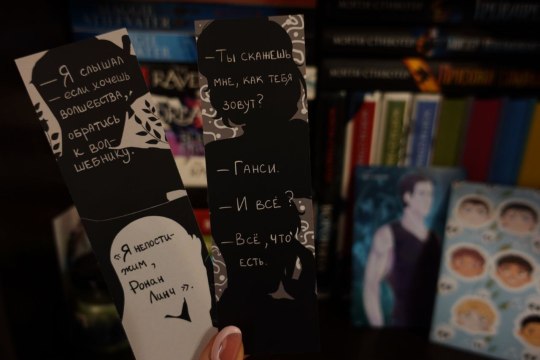 — Я слышал
— если хочешь
волшебства,
обратись
к вол-
шебнику.
«Я непости-
жим,
Ронан
Линч».
— Ты скажешь
мне, как тебя
зовут?
— Ганси.
— И всё?
— Всё, что
есть.